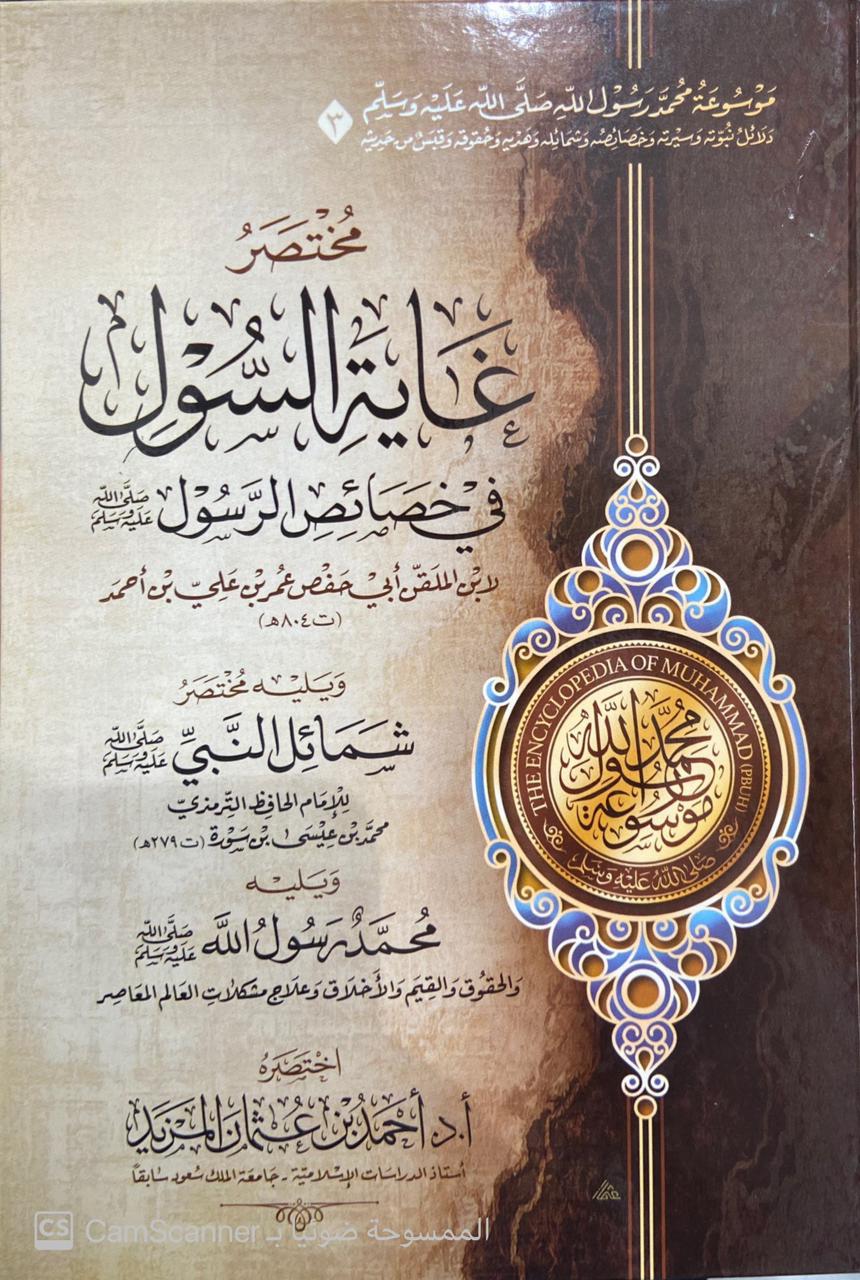 مَوْسُوعَةُ مُحَمَّد رَسُوْل اللّٰه صَلَّى اللّٰه عَلَيْه وَسَلَّم
دَلَائِلُ نُبُوَّتِه وَسِيْرَتِه وَخَصَائِصُه وَشَمَائِلِه وَهَدْيِه وَحُقُوقِه وَقَبَسٌ مِن حَدِيثِه
٣
مُخْتَصَرُ
غَايَةِ السُّوْلِ
فِي خَصَائِصِ الرَّسُوْل صَلَّى اللّٰه عَلَيْه وَسَلَّم
لابْن الملَقّن أَبِيْ حَفْص عُمَر بْن عَلِيّ بْن أحمَد
(ت ٨٠٤هـ)
وَيَلِيْه مُخْتَصَرُ
شَمَائِل النَّبِيِّ صَلَّى اللّٰه عَلَيْه وَسَلَّم
لِلْإمَام الحَافِظ التِّرمذِيّ
مُحمّد بْن عِيْسَى بْن سَوْرَة (ت ٢٧٩هـ)
وَيَلِيْه
مُحَمَّدٌ رَسُوْلُ اللَّه صَلَّى اللّٰه عَلَيْه وَسَلَّم
وَالحقُوْق وَالقِيَم وَالأَخلَاق وَعِلَاج مشكلَاتِ العَالم المعَاصِر
اخْتَصَرَهُ
أ.د. أَحْمَدُ بْنُ عُثْمَان المَزْيَد
أستَاذ الدرَاسَات الإسْلَاميَّة - جَامعَة الملك سُعُود سَابقًا
THE ENCYCLOPEDIA OF MUHAMMAD (PBUH)
مَوْسُوعَة مُحَمَّد رَسُول اللّٰه
صَلَّى اللّٰهُ عَلَيْهِ وَسَلَّمَ
CS CamScanner الممسوحة ضوئيا بـ